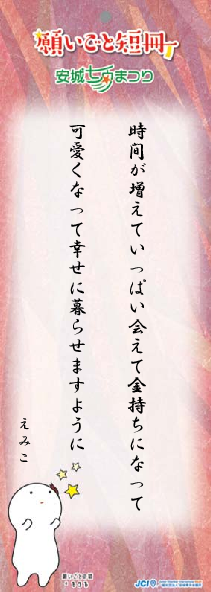 願いごと短冊
安城七夕まつり
時間が増えていっぱい会えて金持ちになって
可愛くなって幸せに暮らせますように
えみこ
願いごと短冊
JCI